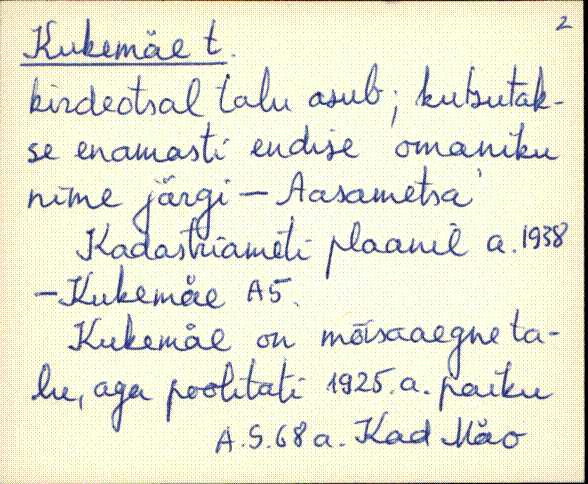 2
Kukemäe t.
kirdeotsal talu asub; kutsutak-
se enamasti endise omaniku
nime järgi – Aasametsa
Kadastriameti plaanil a. 1938
– Kukemäe A5.
Kukemäe on mõisaaegne ta-
lu, aga poolitati 1925.a. paiku
A.S.68a. Kad Mäo